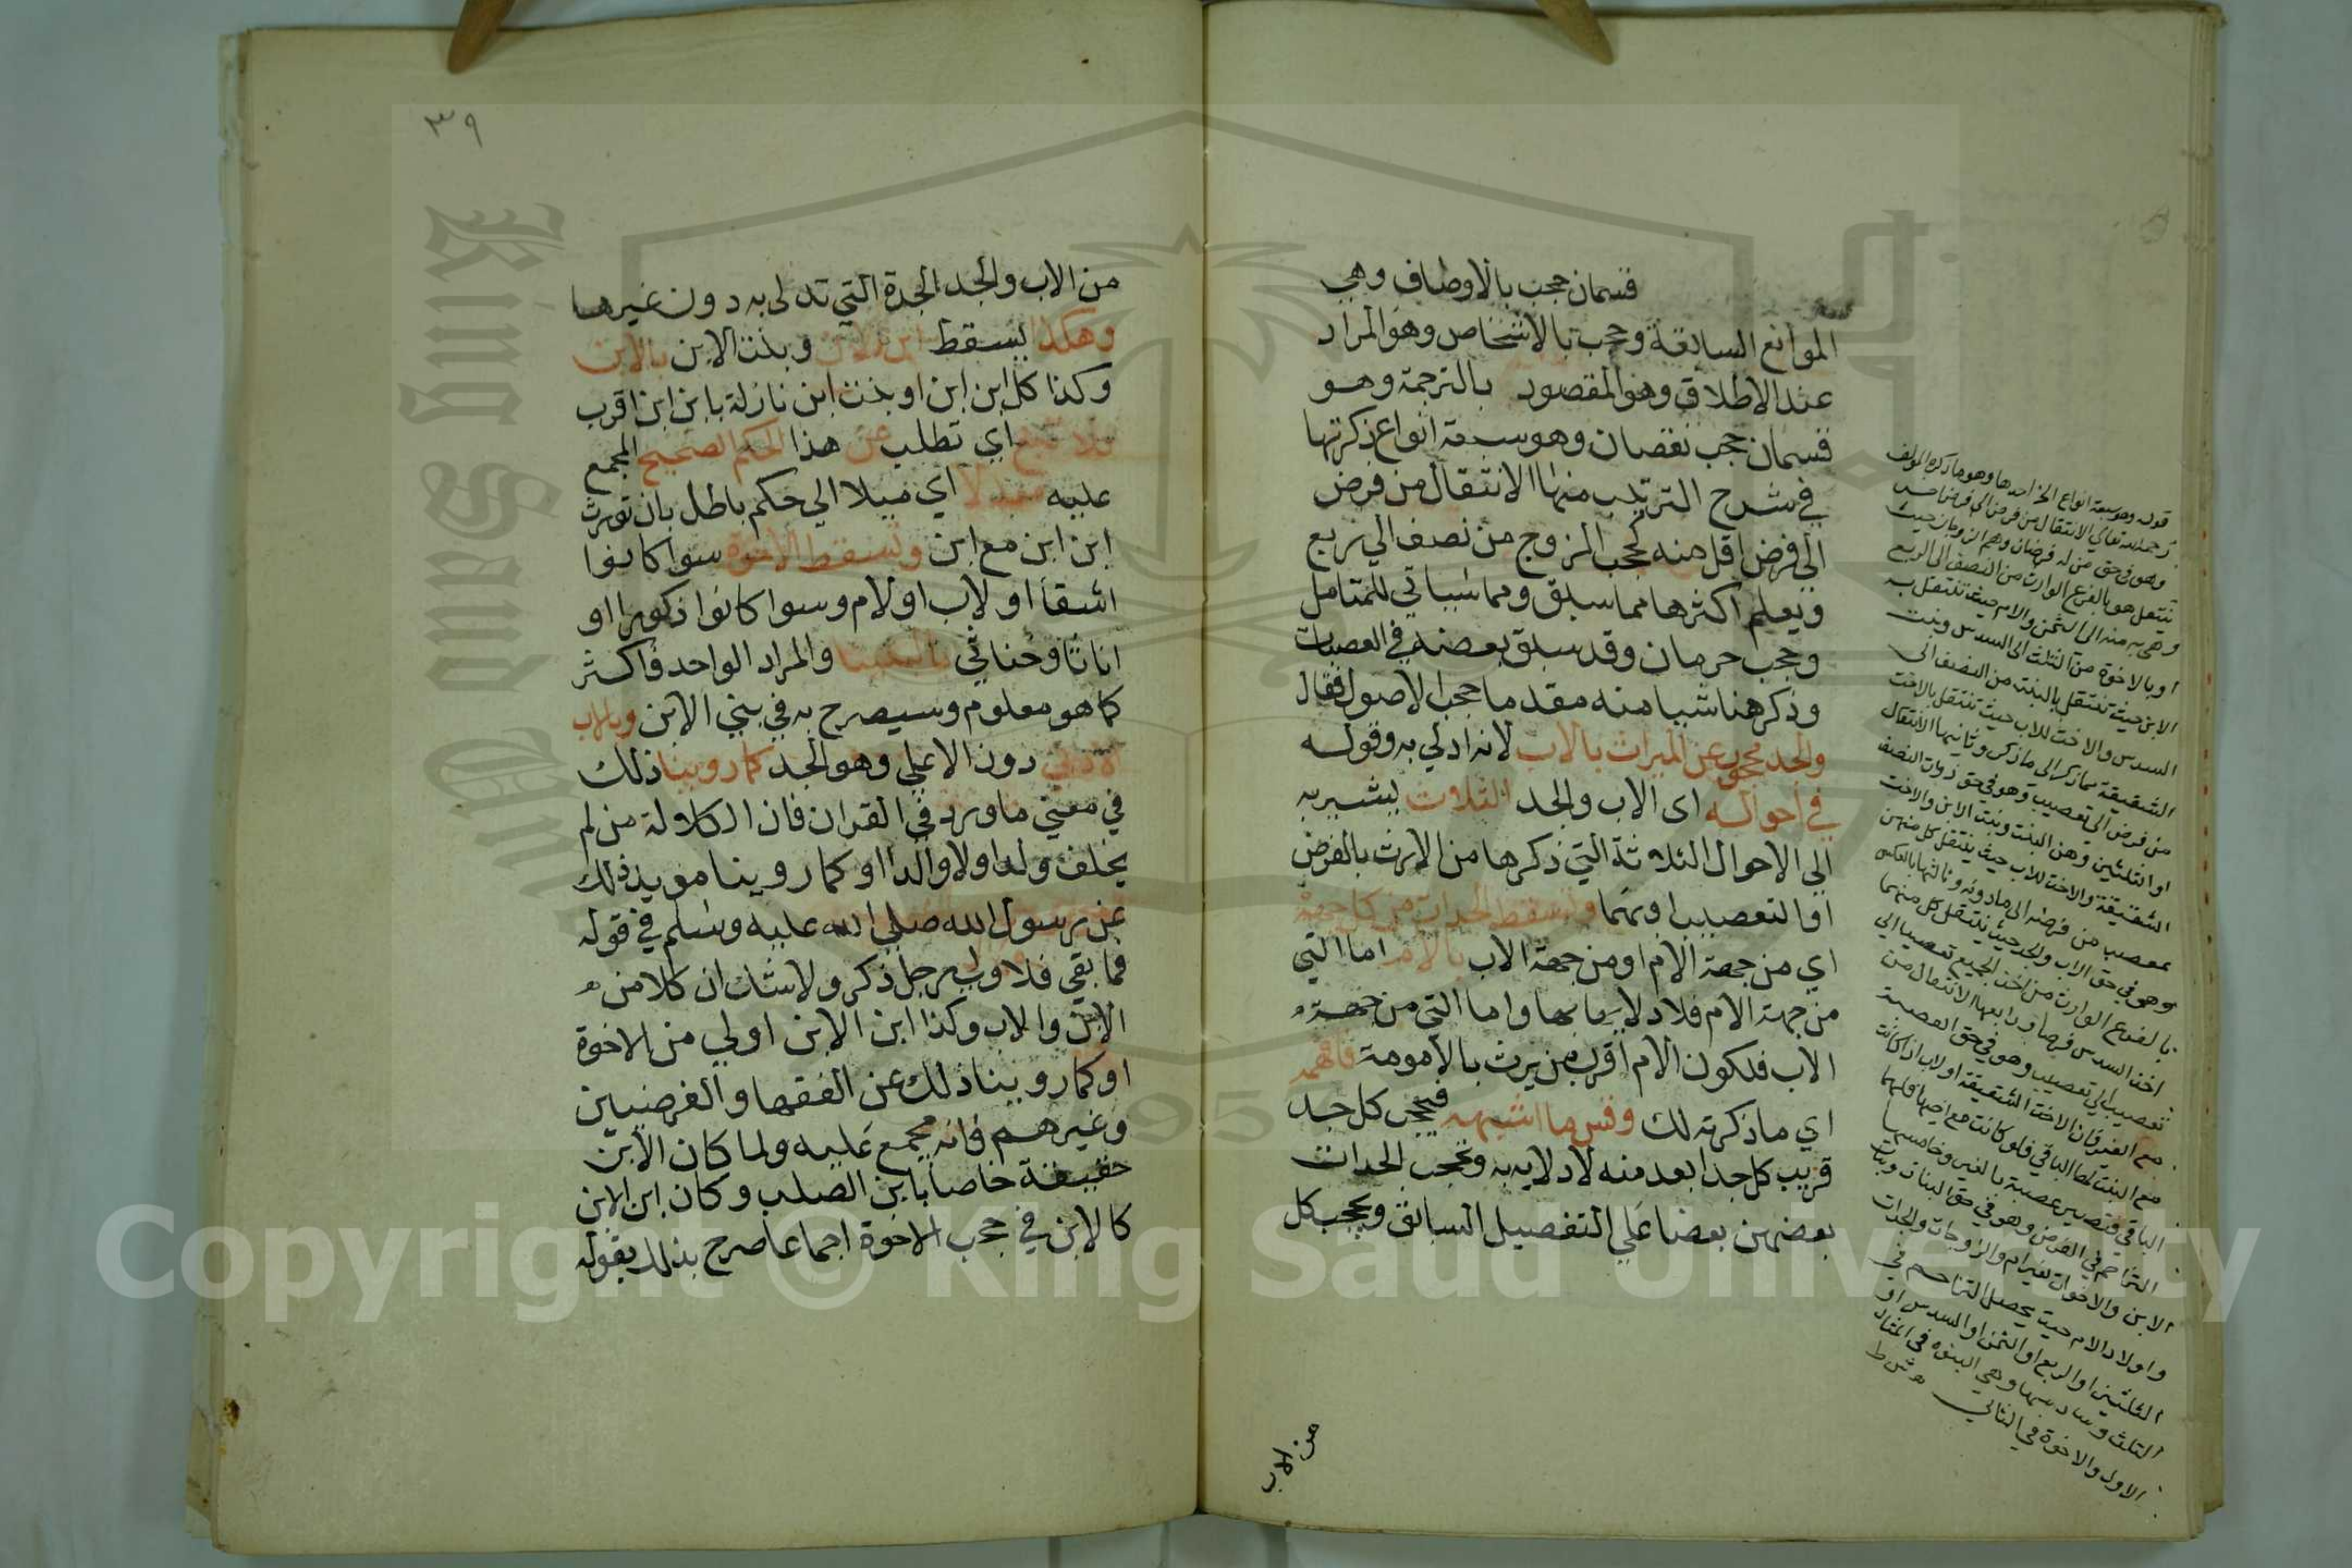 قسمان حجب بالاوصاف وهي
الموانع السابقة وحجب بالاشخاص وهو المراد
عند الاطلاق وهو المقصود بالترجمة وهو
قسمان حجب نقصان وهو سبعة انواع ذكرتها
في شرح الترتيب منها الانتقال من فرض
الي فرض اقل منه كحجب الزوج من نصف الي ربع
ويعلم اكثرها مما سبق ومما سياتي للمتامل
وحجب حرمان وقد سبق بعضه في العصبات
وذكر هنا شيا منه مقدما حجب الاصول فقال
والجد محجوب عن الميراث بالاب لانه ادلي به وقوله
في احواله اى الاب والجد الثلاث ليشير به
الي الاحوال الثلاثة التي ذكرها من الارث بالفرض
او التعصيب او بهما وتسقط الجدات من كل جهة
اي من جهة الام او من جهة الاب بالام اما التي
من جهة الام فلادلايها بها واما التي من جهة
الاب فلكون الام اقرب من يرث بالامومة فافهمه
اي ما ذكرته لك وقس ما اشبهه فيحجب كل جد
قريب كل جد ابعد منه لادلايه به وتحجب الجدات
بعضهن بعضا علي التفصيل السابق ويحجب كل
من الاب
قوله وهو سبعة انواع الخ احدها وهو ما ذكره المولف
رحمه الله تعالي الانتقال من فرض الي فرض
وهو في حق من له فرضان وهم الزوجان حيث
ينتقل هو بالفرع الوارث من النصف الى الربع
وهي به منه الى الثمن والام حيث تنتقل به
او بالاخوة من الثلث الى السدس وبنت
الابن حيث تنتقل بالبنت من النصف الى
السدس والاخت للاب حيث تنتقل بالاخت
الشقيقة مما ذكر الى ما ذكر وثانيها الانتقال
من فرض الى تعصيب وهو في حق ذوات النصف
او الثلثين وهن البنت وبنت الابن والاخت
الشقيقة والاخت للاب حيث ينتقل كل منهن
بمعصب من فرضه الى ما دونه وثالثها بالعكس
وهو في حق الاب والجد حيث ينتقل كل منهما
بالفرع الوارث من اخذ الجميع تعصيبا الي
اخذ السدس فرضا ورابعها الانتقال من
تعصيب الى تعصيب وهو في حق العصبة
مع الغير فان الاخت الشقيقة او لاب اذا كانت
مع البنت لها الباقي فلو كانت مع اخيها فلهما
الباقي فتصير عصبة بالغير وخامسها
التزاحم في الفرض وهو في حق البنات وبنات
الابن والاخوات لغير ام والزوجات والجدات
واولاد الام حيث يحصل التزاحم في
الثلثين او الربع او الثمن او السدس او
الثلث وسادسها وهي البنوة في المثال
الاول والاخوة في الثاني
٣٩
من الاب والجد الجدة التي تدلى به دون غيرها
وهكذا يسقط ابن الابن وبنت الابن بالابن
وكذا كل ابن ابن او بنت ابن نازلة بابن ابن اقرب
فلا تبغ اي تطلب عن هذا الحكم الصحيح المجمع
عليه معدلا اي ميلا الي حكم باطل بان تورث
ابن ابن مع ابن وتسقط الاخوة سوا كانوا
اشقا او لاب او لام وسوا كانوا ذكورا او
اناثا وخناثي بالبنينا والمراد الواحد فاكثر
كما هو معلوم وسيصرح به في بني الابن وبالاب
الادني دون الاعلي وهو الجد كما روينا ذلك
في معني ما ورد في القران فان الكلالة من لم
يخلف ولدا ولا والدا او كما روينا مويد ذلك
عن رسول الله صلي الله عليه وسلم في قوله
فما بقي فلاولي رجل ذكر ولا شك ان كلا من
الابن والاب وكذا ابن الابن اولي من الاخوة
او كما روينا ذلك عن الفقها والفرضيين
وغيرهم فانه مجمع عليه ولما كان الابن
حقيقة خاصا بابن الصلب وكان ابن الابن
كالابن في حجب الاخوة اجماعا صرح بذلك بقوله